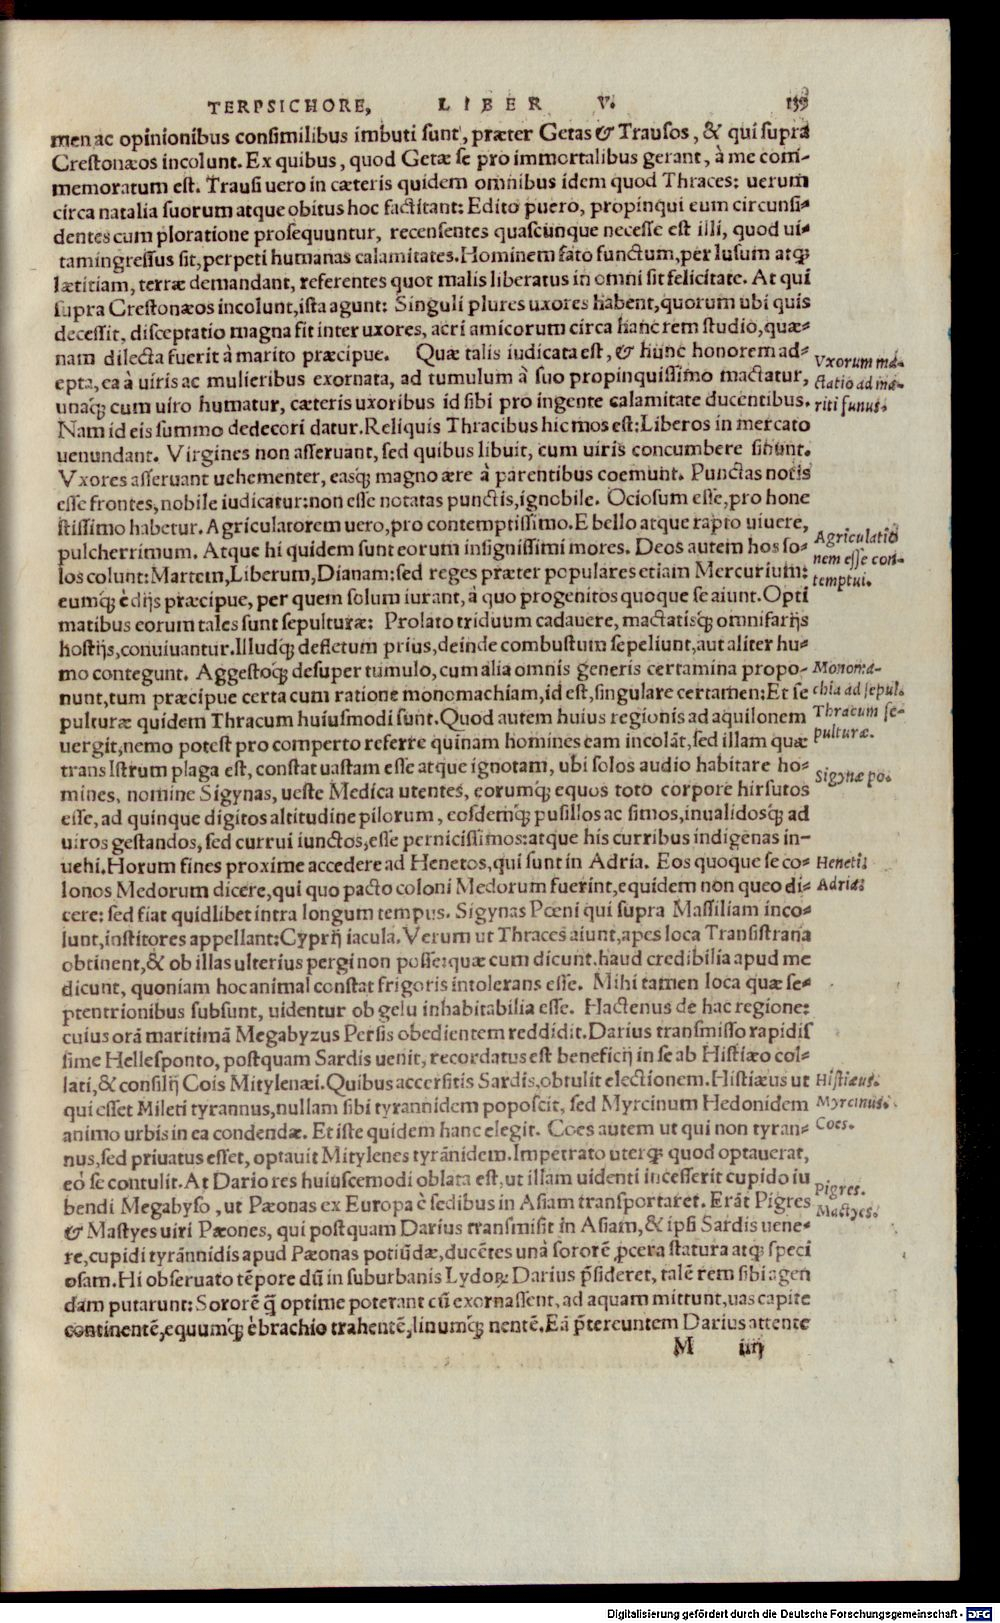 TERPSICHORE, LIBER V. 139
men ac opinionibus consimilibus imbuti sunt, præter Getas & Trausos, & qui supra
Crestonæos incolunt. Ex quibus, quod Getæ se pro immortalibus gerant, à me com-
memoratum est. Trausi uero in cæteris quidem omnibus idem quod Thraces: uerum
circa natalia suorum atque obitus hoc factitant: Edito puero, propinqui eum circunsi-
dentes cum ploratione prosequuntur, recensentes quascunque necesse est illi, quod ui-
tam ingressus sit, perpeti humanas calamitates. Hominem fato functum, per lusum atq;
lætitiam, terræ demandant, referentes quot malis liberatus in omni sit felicitate. At qui
supra Crestonæos incolunt, ista agunt: Singuli plures uxores habent, quorum ubi quis
decessit, disceptatio magna fit inter uxores, acri amicorum circa hanc rem studio, quæ-
nam dilecta fuerit à marito præcipue. Quæ talis iudicata est, & hunc honorem ad-
epta, ea à uiris ac mulieribus exornata, ad tumulum à suo propinquissimo mactatur,
unaq́; cum uiro humatur, cæteris uxoribus id sibi pro ingente calamitate ducentibus.
Nam id eis summo dedecori datur. Reliquis Thracibus hic mos est: Liberos in mercato
uenundant. Virgines non asseruant, sed quibus libuit, cum uiris concumbere sinunt.
Vxores asseruant uehementer, easq́; magno ære à parentibus coemunt. Punctas notis
esse frontes, nobile iudicatur: non esse notatas punctis, ignobile. Ociosum esse, pro hone
stissimo habetur. Agricultorem uero, pro contemptissimo. E bello atque rapto uiuere,
pulcherrimum. Atque hi quidem sunt eorum insignissimi mores. Deos autem hos so-
los colunt: Martem, Liberum, Dianam: sed reges præter populares etiam Mercurium:
eumq́; è dijs præcipue, per quem solum iurant, à quo progenitos quoque se aiunt. Opti
matibus eorum tales sunt sepulturæ: Prolato triduum cadauere, mactatisq́; omnifarijs
hostijs, conuiuantur. Illudq́; defletum prius, deinde combustum sepeliunt, aut aliter hu-
mo contegunt. Aggestoq́; desuper tumulo, cum alia omnis generis certamina propo-
nunt, tum præcipue certa cum ratione monomachiam, id est, singulare certamen: Et se
pulturæ quidem Thracum huiusmodi sunt. Quod autem huius regionis ad aquilonem
uergit, nemo potest pro comperto referre quinam homines eam incolāt, sed illam quæ
trans Istrum plaga est, constat uastam esse atque ignotam, ubi solos audio habitare ho-
mines, nomine Sigynas, ueste Medica utentes, eorumq́; equos toto corpore hirsutos
esse, ad quinque digitos altitudine pilorum, eosdemq́; pusillos ac simos, inualidosq́; ad
uiros gestandos, sed currui iunctos, esse pernicissimos: atque his curribus indigenas in-
uehi. Horum fines proxime accedere ad Henetos, qui sunt in Adria. Eos quoque se co-
lonos Medorum dicere, qui quo pacto coloni Medorum fuerint, equidem non queo di-
cere: sed fiat quidlibet intra longum tempus. Sigynas Pœni qui supra Massiliam inco-
lunt, institores appellant: Cyprij iacula. Verum ut Thraces aiunt, apes loca Transistrana
obtinent, & ob illas ulterius pergi non posse: quæ cum dicunt, haud credibilia apud me
dicunt, quoniam hoc animal constat frigoris intolerans esse. Mihi tamen loca quæ se-
ptentrionibus subsunt, uidentur ob gelu inhabitabilia esse. Hactenus de hac regione:
cuius orā maritimā Megabyzus Persis obedientem reddidit. Darius transmisso rapidis
sime Hellesponto, postquam Sardis uenit, recordatus est beneficij in se ab Histiæo col-
lati, & consilij Cois Mitylenæi. Quibus accersitis Sardis, obtulit electionem. Histiæus ut
qui esset Mileti tyrannus, nullam sibi tyrannidem poposcit, sed Myrcinum Hedonidem
animo urbis in ea condendæ. Et iste quidem hanc elegit. Coes autem ut qui non tyran-
nus, sed priuatus esset, optauit Mitylenes tyrānidem. Impetrato uterq; quod optauerat,
eò se contulit. At Dario res huiuscemodi oblata est, ut illam uidenti incesserit cupido iu
bendi Megabyso, ut Pæonas ex Europa è sedibus in Asiam transportaret. Erāt Pigres
& Mastyes uiri Pæones, qui postquam Darius transmisit in Asiam, & ipsi Sardis uene-
re, cupidi tyrannidis apud Pæonas potiūdæ, ducētes unà sororē ꝓcera statura atq; speci
osam. Hi obseruato tēpore dū in suburbanis Lydoꝝ Darius p̄sideret, talē rem sibi agen
dam putarunt: Sororē q̄ optime poterant cū exornassent, ad aquam mittunt, uas capite
continentē, equumq́; è brachio trahentē, linumq́; nentē. Eā p̄tereuntem Darius attente
M iiij
Vxorum ma-
ctatio ad ma-
riti funus.
Agriculatio
nem esse con-
temptui.
Monoma-
chia ad sepul.
Thracum se-
pulturæ.
Sigynæ po.
Heneti.
Adria.
Histiæus.
Myrcinus.
Coes.
Pigres.
Mastyes.
Digitalisierung gefördert durch die Deutsche Forschungsgemeinschaft - DFG